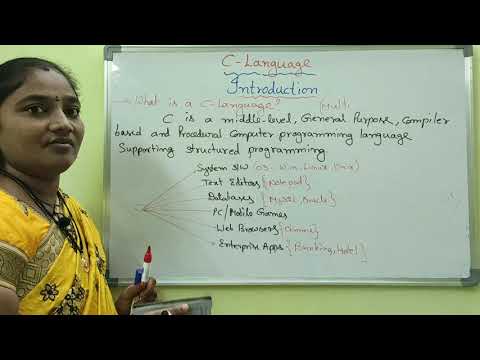 C-Language
Introduction
→ What is a C-Language? (Multi
C is a middle-level, General Purpose, Compiler
based and Procedural Computer programming language
Supporting structured programming
System S/W (OS- Win, Linux, Unix)
Text Editors {Notepad}
Databases {MySQL, Oracle}
PC/Mobile Games
Web Browsers {Chrome}
Enterprise Apps {Banking, Hotel}